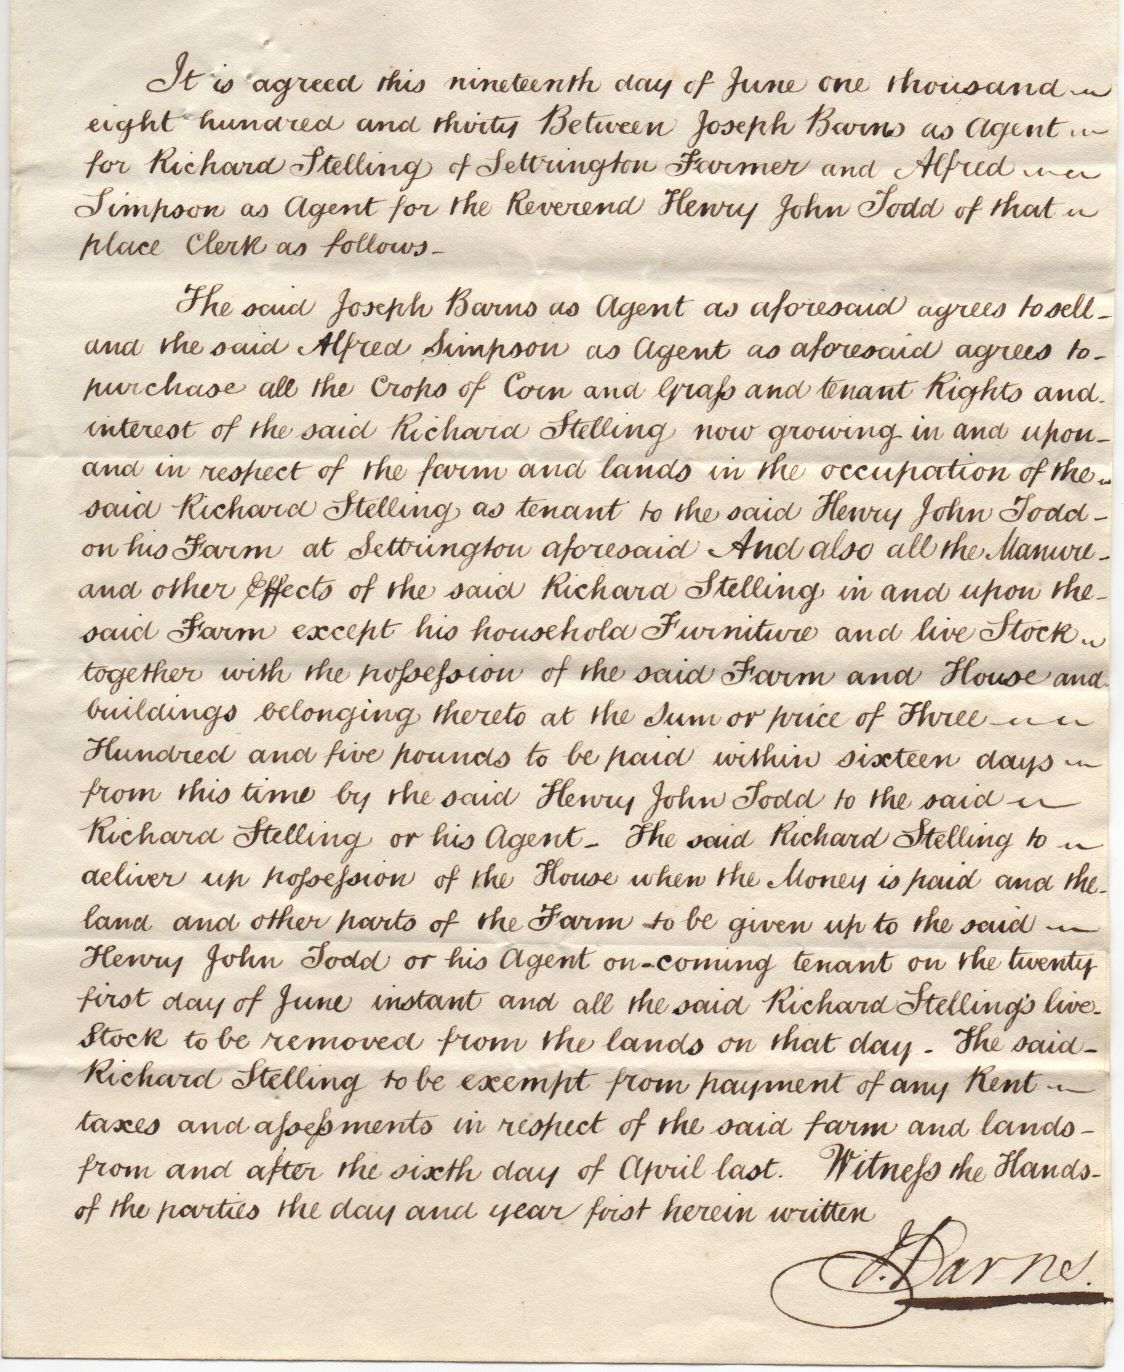 It is agreed this nineteenth day of June one thousand
eight hundred and thirty Between Joseph Barns as Agent
for Richard Stelling of Settrington Farmer and Alfred
Simpson as Agent for the Reverend Henry John Todd of that
place Clerk as follows -
The said Joseph Barns as Agent as aforesaid agrees to sell -
and the said Alfred Simpson as Agent as aforesaid agrees to -
purchase all the Crops of Corn and Graſs and tenant Rights and
interest of the said Richard Stelling now growing in and upon -
and in respect of the farm and lands in the occupation of the
said Richard Stelling as tenant to the said Henry John Todd -
on his Farm at Settrington aforesaid And also all the Manure -
and other Effects of the said Richard Stelling in and upon the -
said Farm except his household Furniture and live Stock
together with the poſseſsion of the said Farm and House and
buildings belonging thereto at the Sum or price of Three
Hundred and five pounds to be paid within sixteen days
from this time by the said Henry John Todd to the said
Richard Stelling or his Agent - The said Richard Stelling to
deliver up poſseſsion of the House when the Money is paid and the -
land and other parts of the Farm to be given up to the said
Henry John Todd or his Agent on-coming tenant on the twenty
first day of June instant and all the said Richard Stelling's live -
Stock to be removed from the lands on that day - The said -
Richard Stelling to be exempt from payment of any Rent
taxes and aſseſsments in respect of the said farm and lands -
from and after the sixth day of April last. Witneſs the Hands -
of the parties the day and year first herein written
J. Barns.